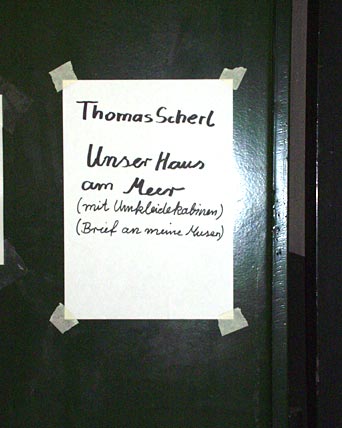 Thomas Scherl
Unser Haus
am Meer
(mit Umkleidekabinen)
(Brief an meine Musen)